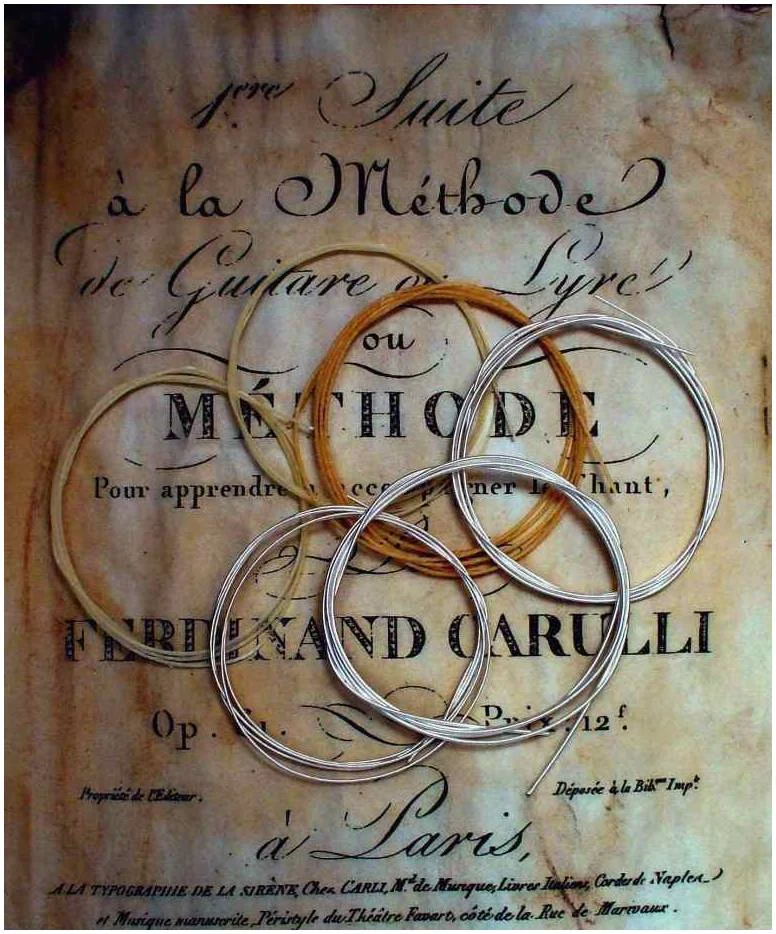 1.ere Suite
à la Méthode
de Guitare ou Lyre
ou
MÉTHODE
Pour apprendre à accompagner le Chant,
FERDINAND CARULLI
Op. Prix: 12 f.
Propriété de l'Editeur. Déposée à la Bib.que Imp.le
à Paris,
A LA TYPOGRAPHIE DE LA SIRÈNE, Chez CARLI, M.d de Musique, Livres Italiens, Cordes de Naples
et Musique manuscrite, Péristyle du Théâtre Favart, côté de la Rue de Marivaux.